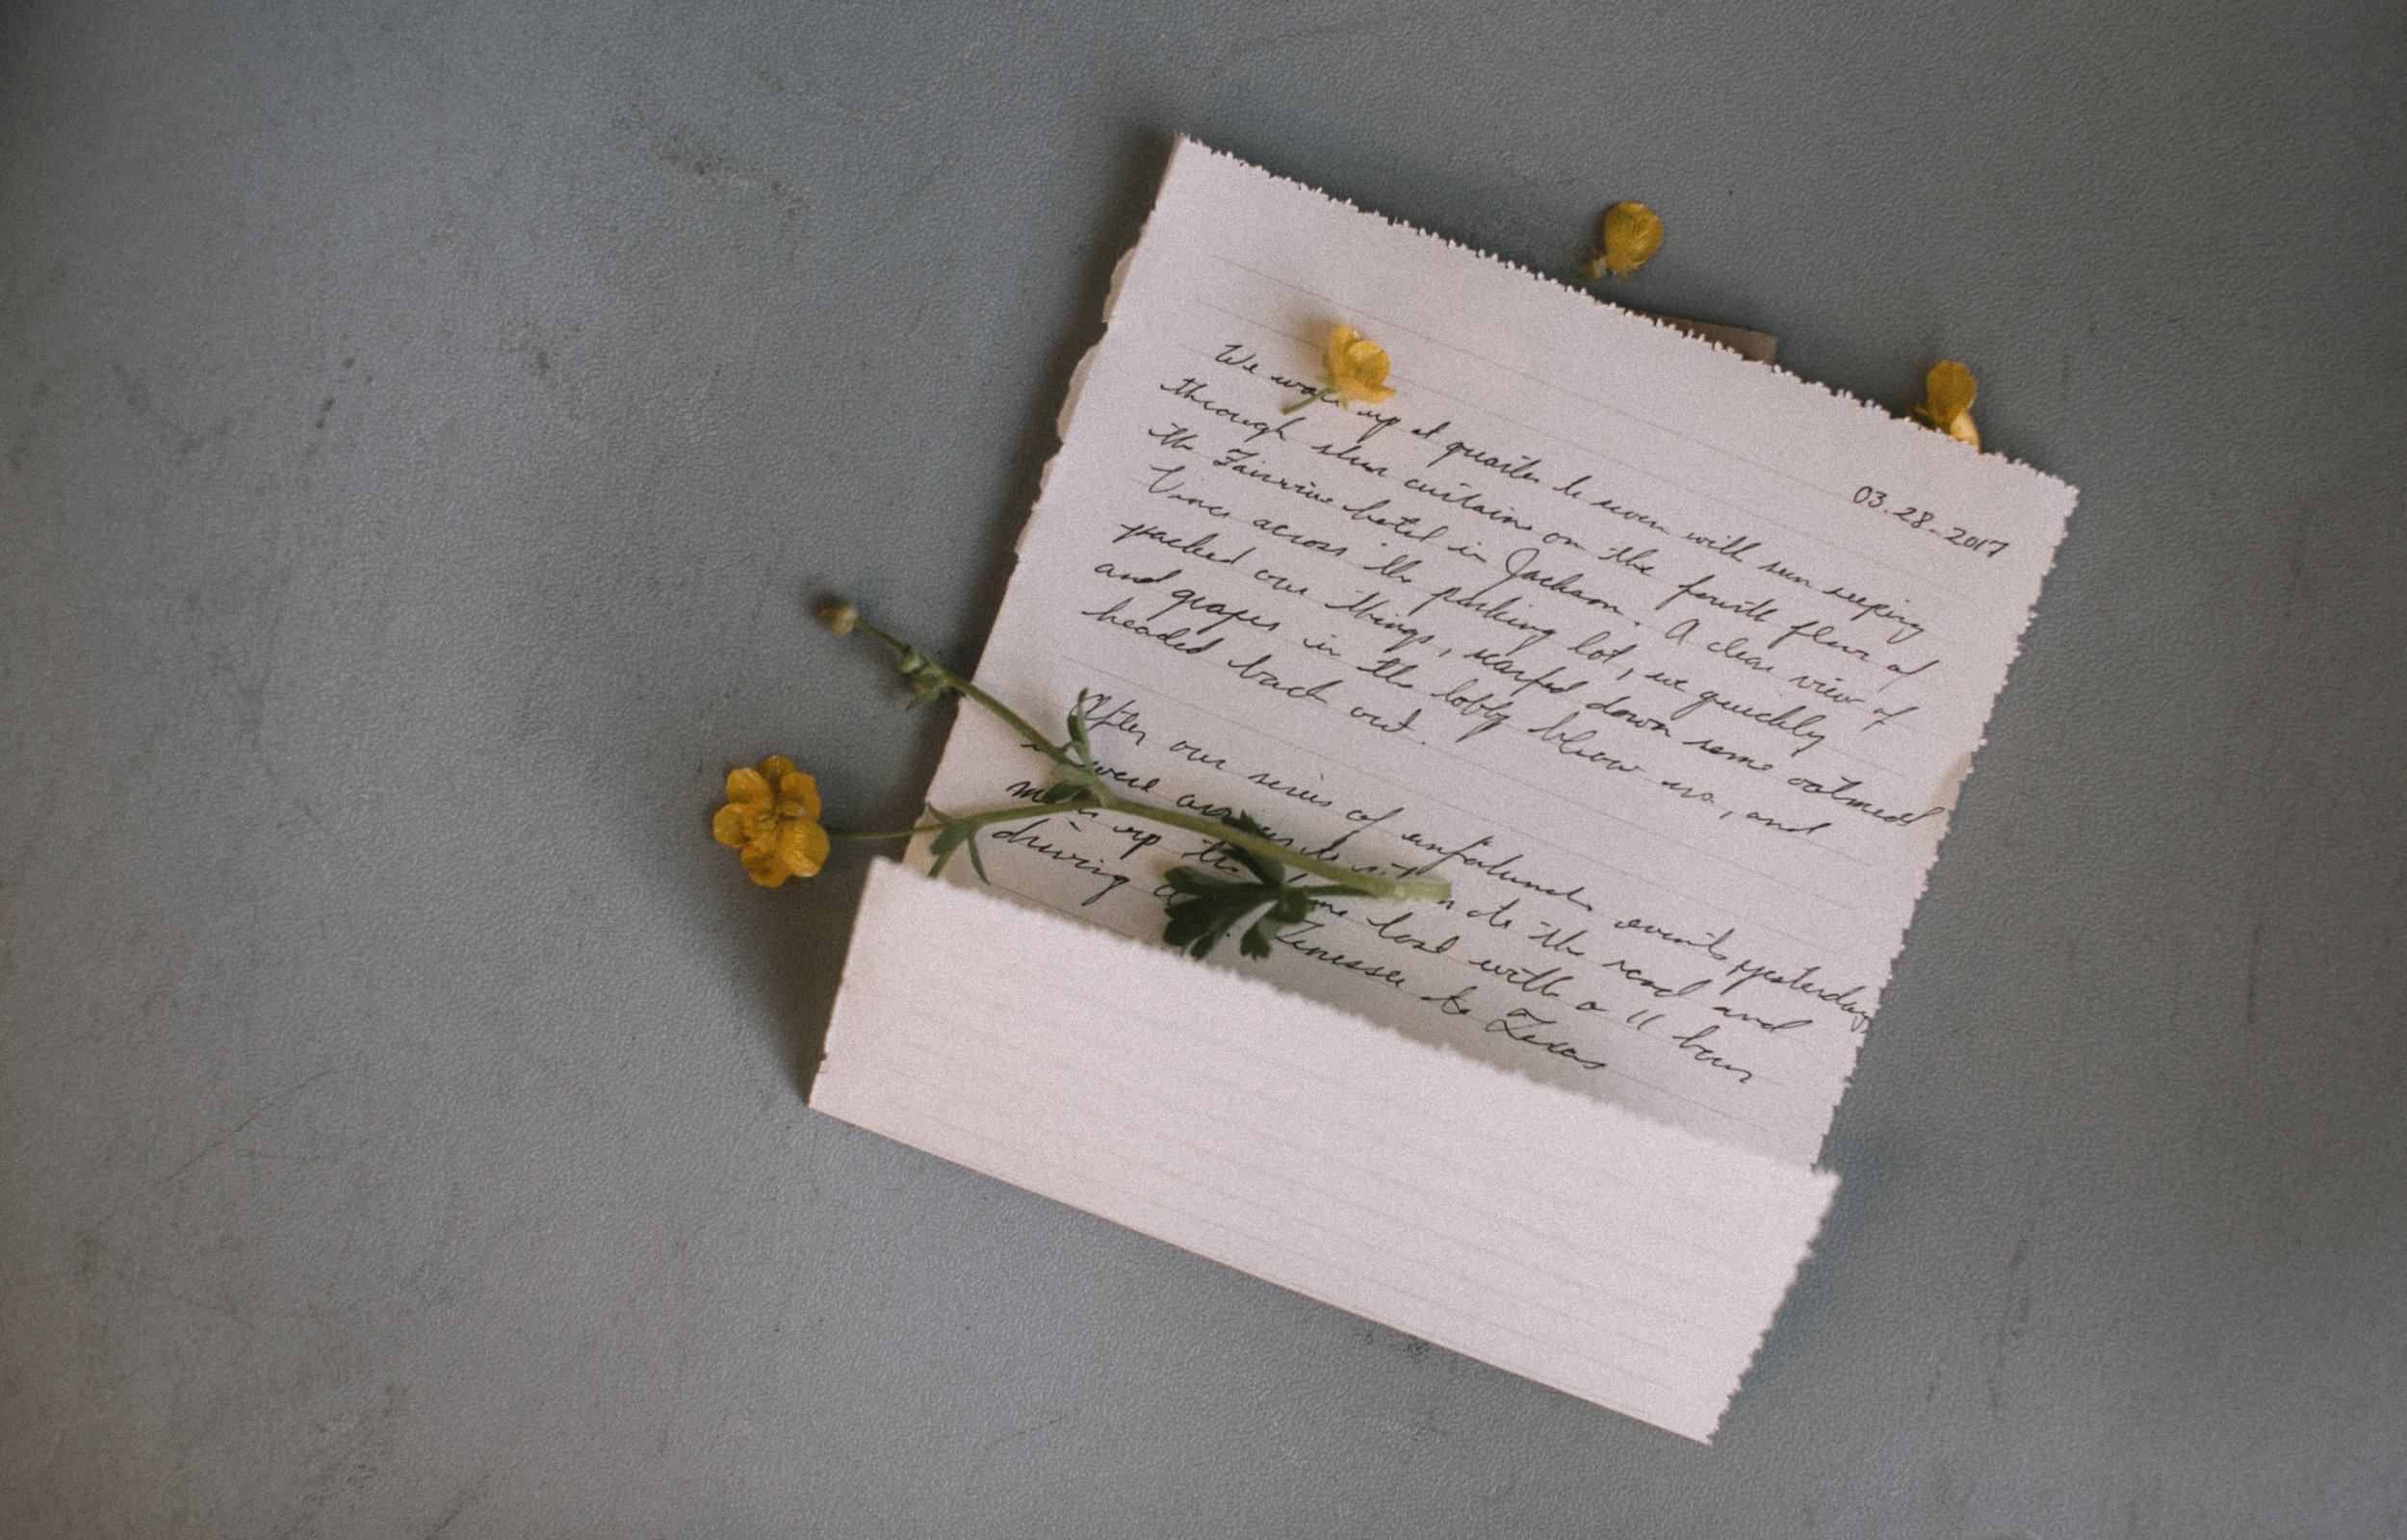 03.28.2017
We wake up at quarter to seven with sun seeping
through sheer curtains on the fourth floor of
the Fairview hotel in Jackson. A clear view of
across the parking lot, we quickly
packed our things, scarfed down some oatmeal
and grapes in the lobby below us, and
headed back out.
After our series of unfortunate events yesterday,
we were to the road and
up lost with a 11 hour
driving Tenessee to Texas